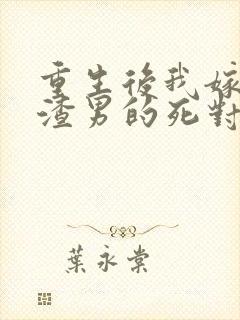 重生後我嫁
渣男的死對
葉永棠